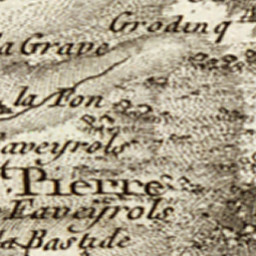 Grodinq
la Grave
la Fon
aveyrols
t. Pierre
Eaveyrols
la Bastide